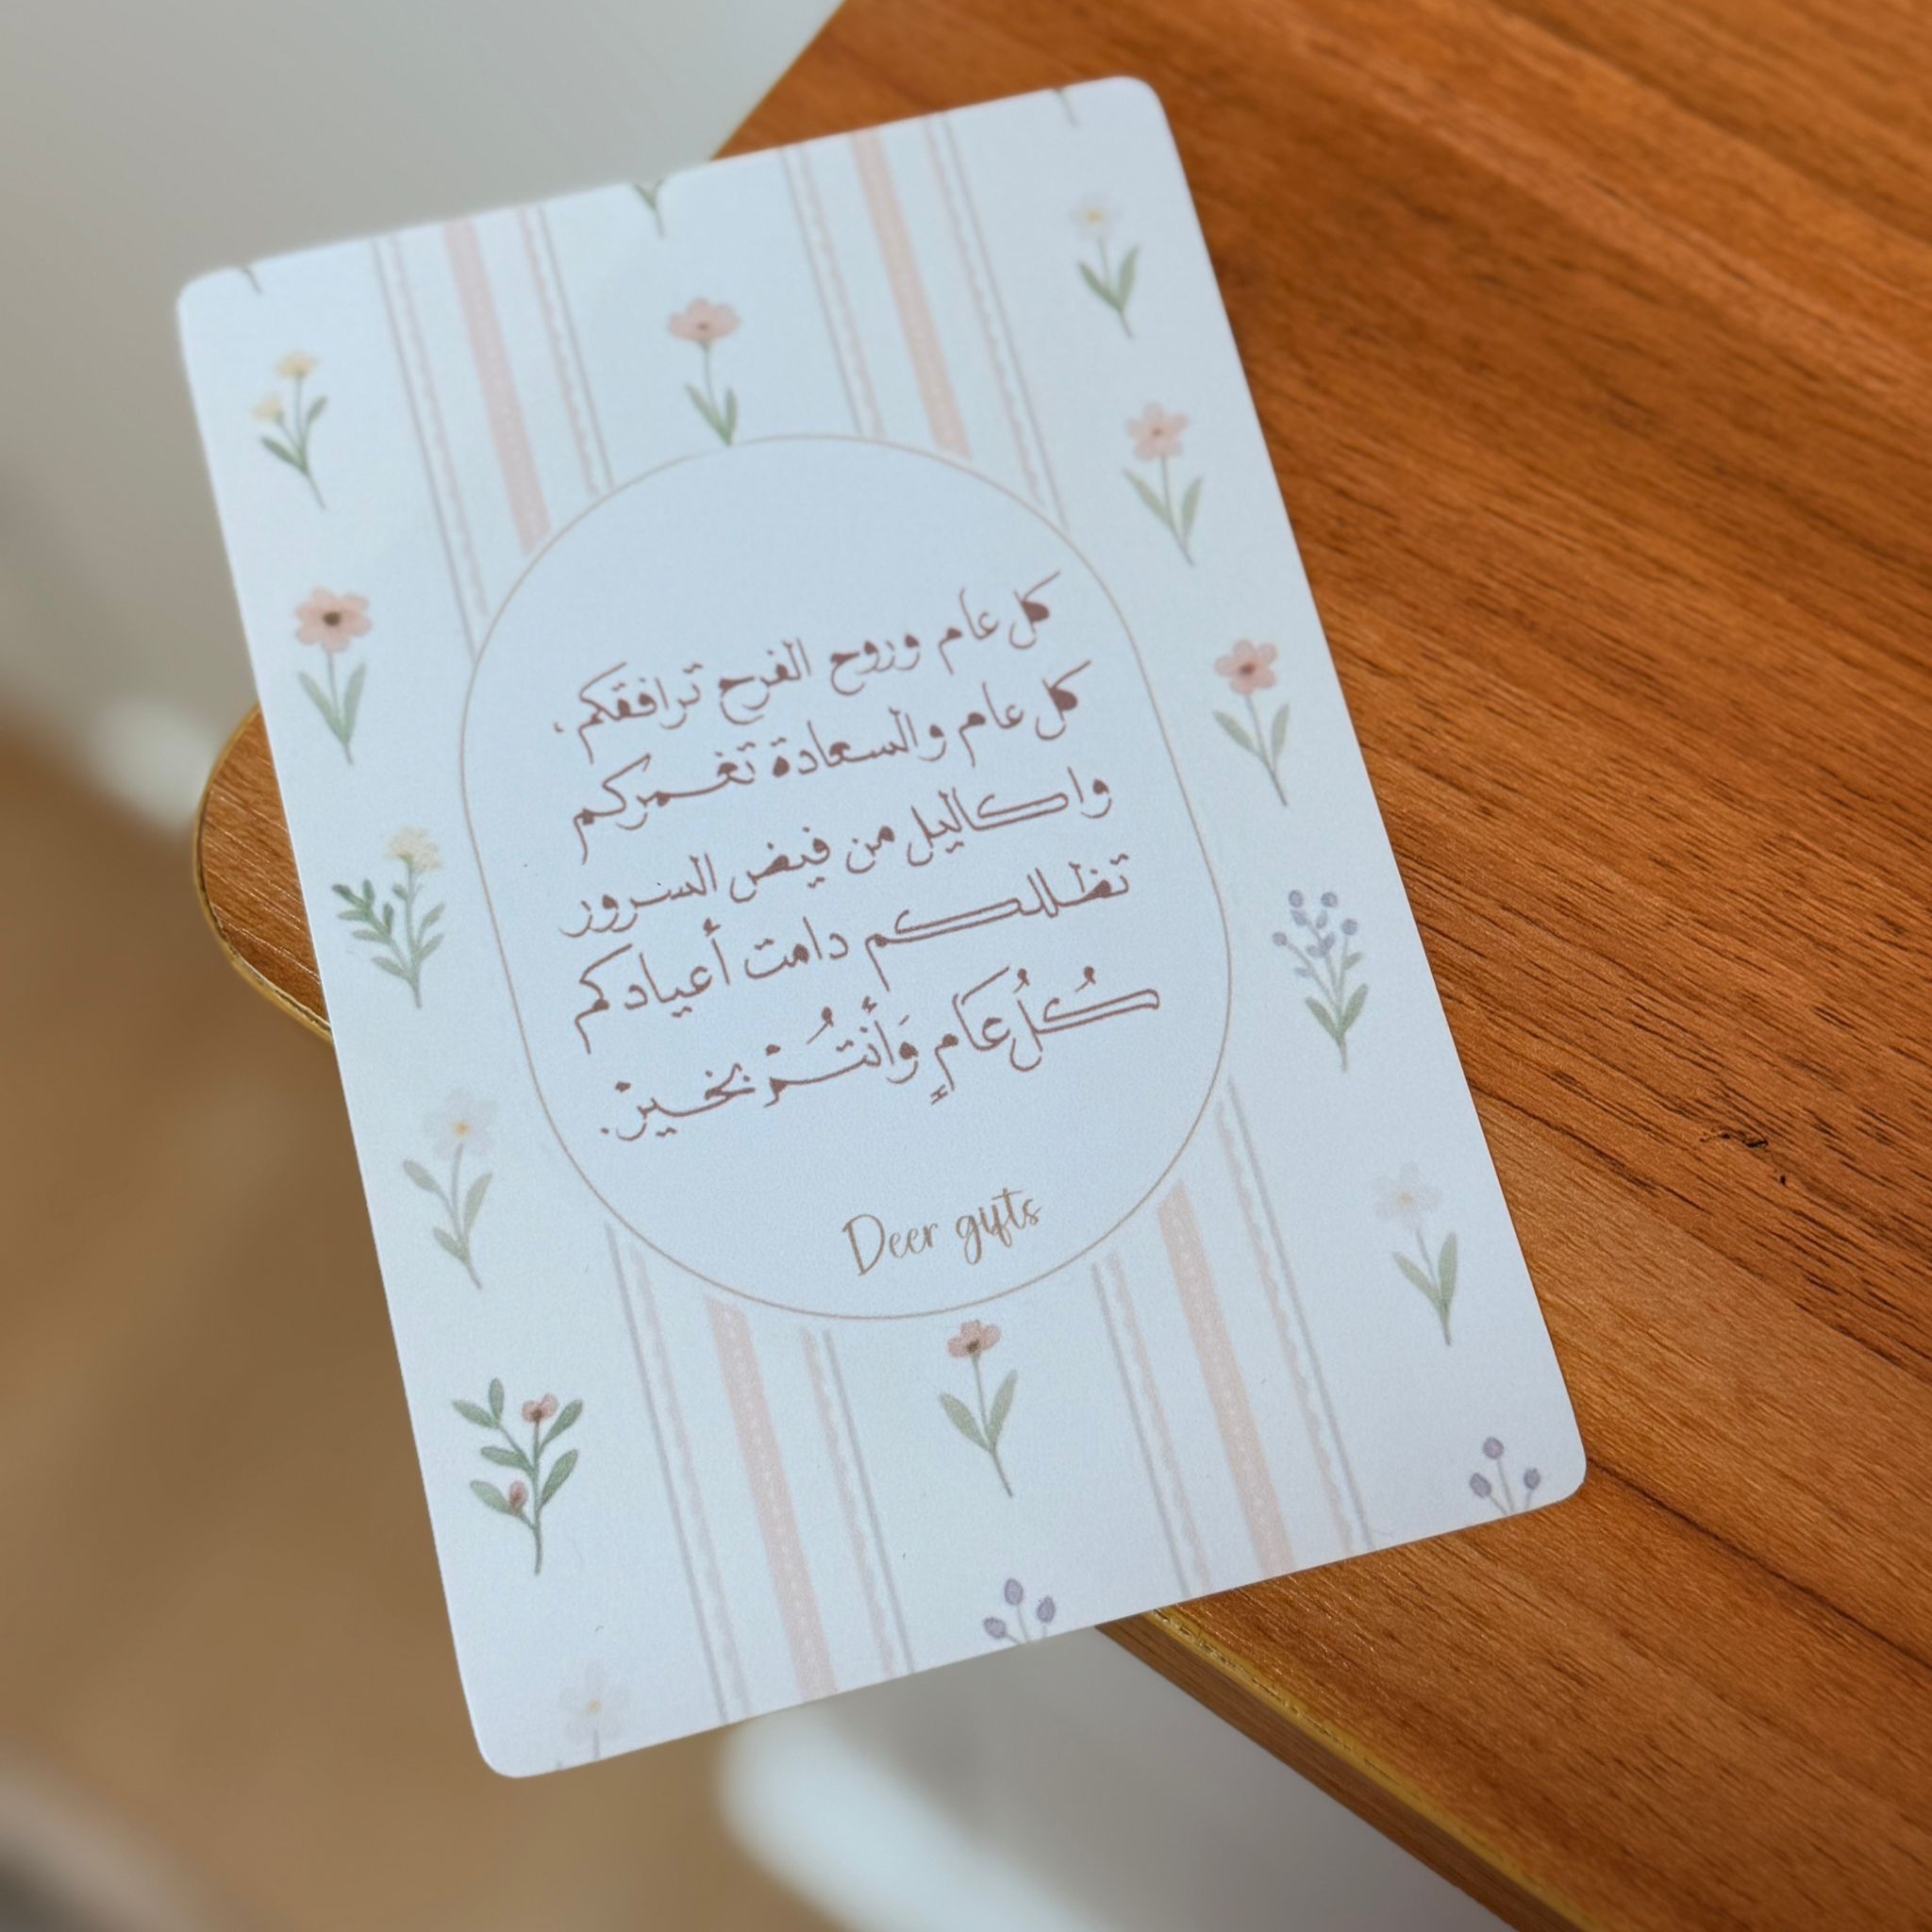 كل عام وروح الفرح ترافقكم،
كل عام والسعادة تغمركم
واكاليل من فيض السرور
تظللكم دامت أعيادكم
كُلُ عَامٍ وَأنتُمْ بخيرْ.
Deer gifts